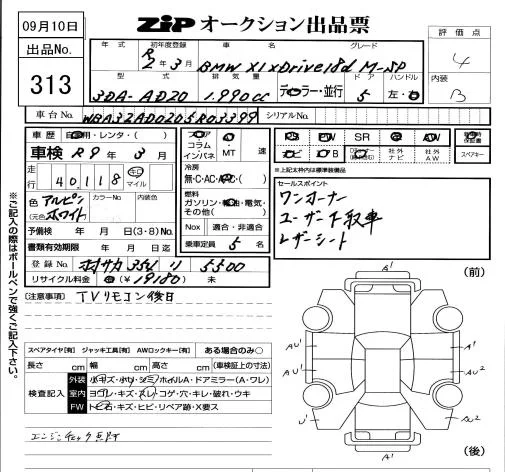 09月10日
ZiP オークション出品票
出品No.
313
評価点
4
内装
B
年式 初年度登録 車名 グレード
R2年3月 BMW X1 xDrive18d M-SP
型式 排気量 ドア ハンドル
3DA-AD20 1,990cc ディーラー・並行 5 左・右
車台No. WBA32AD0205R03399 シリアルNo.
車歴 自家用・レンタ・( )
車検 R9年3月
走行 40,118 km マイル
色 アルピンホワイト (元色 ) カラーNo. 内装色
予備検 年 月 日(3・8)No.
書類有効期限 年 月 日迄
登録No. 35V り 5500
リサイクル料金 (¥19180) 未
フロア コラム インパネ ・MT 速
冷房 無・C・AC・AAC・( )
燃料 ガソリン・軽油・電気・その他( )
Nox 適合・非適合
乗車定員 5 名
PS PW SR AW 保証書
ナビ 社外ナビ 社外AW スペアキー
※上記太枠内は標準装備品
セールスポイント
ワンオーナー
ユーザー下取車
レザーシート
[注意事項] TVリモコン後日
スペアタイヤ[有] ジャッキ工具[有] AWロックキー[有] ある場合のみ○
長さ cm 幅 cm 高さ cm (車検証上の寸法)
検査記入
外装 小キズ・小ヘコ・シミ・ホイルA・ドアミラー(A・ワレ)
室内 ヨゴレ・キズ・スレ・コゲ・穴・キレ・破れ・ウキ
FW トビ石・キズ・ヒビ・リペア跡・X要ス
エンジンチェック点灯
※ご記入の際はボールペンで強くご記入下さい。
(前)
A'
A' A'
AU' U'
AU' AU2
U' AU2
A'
(後)